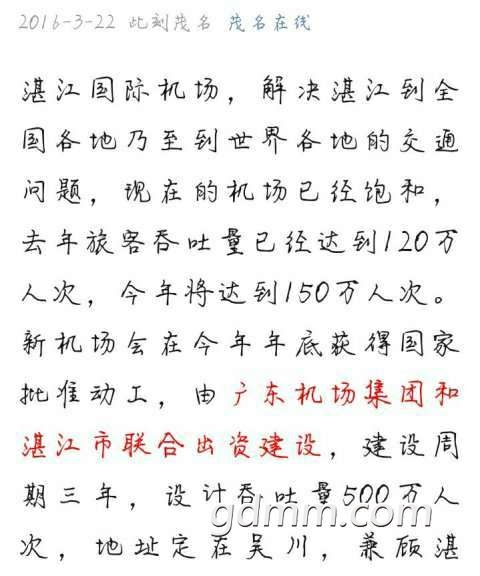 2016-3-22 此刻茂名 茂名在线
湛江国际机场，解决湛江到全
国各地乃至到世界各地的交通
问题，现在的机场已经饱和，
去年旅客吞吐量已经达到120万
人次，今年将达到150万人次。
新机场会在今年年底获得国家
批准动工，由广东机场集团和
湛江市联合出资建设，建设周
期三年，设计吞吐量500万人
次，地址定在吴川，兼顾湛
gdmm.com